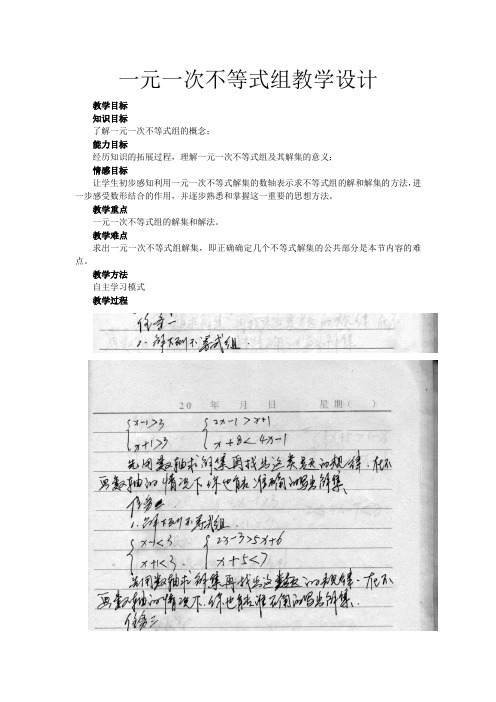 一元一次不等式组教学设计
教学目标
知识目标
了解一元一次不等式组的概念;
能力目标
经历知识的拓展过程,理解一元一次不等式组及其解集的意义;
情感目标
让学生初步感知利用一元一次不等式解集的数轴表示求不等式组的解和解集的方法,进
一步感受数形结合的作用,并逐步熟悉和掌握这一重要的思想方法。
教学重点
一元一次不等式组的解集和解法。
教学难点
求出一元一次不等式组解集,即正确确定几个不等式解集的公共部分是本节内容的难
点。
教学方法
自主学习模式
教学过程
任务一
1. 解下列不等式组.
20 年 月 日 星期( )
{x-1>3 {2x-1>x+1
{x+1>3 {x+8<4x-1
先用数轴求解集再找出这类题的规律.在不
画数轴的情况下你也能准确的写出解集
任务二
1. 解下列不等式组
{x-1<3 {2x-3>5x+6
{x+1<3. {x+5<7
先用数轴求解集再找出这类题的规律.在不
画数轴的情况下.你也能准确的写出解集.
任务三